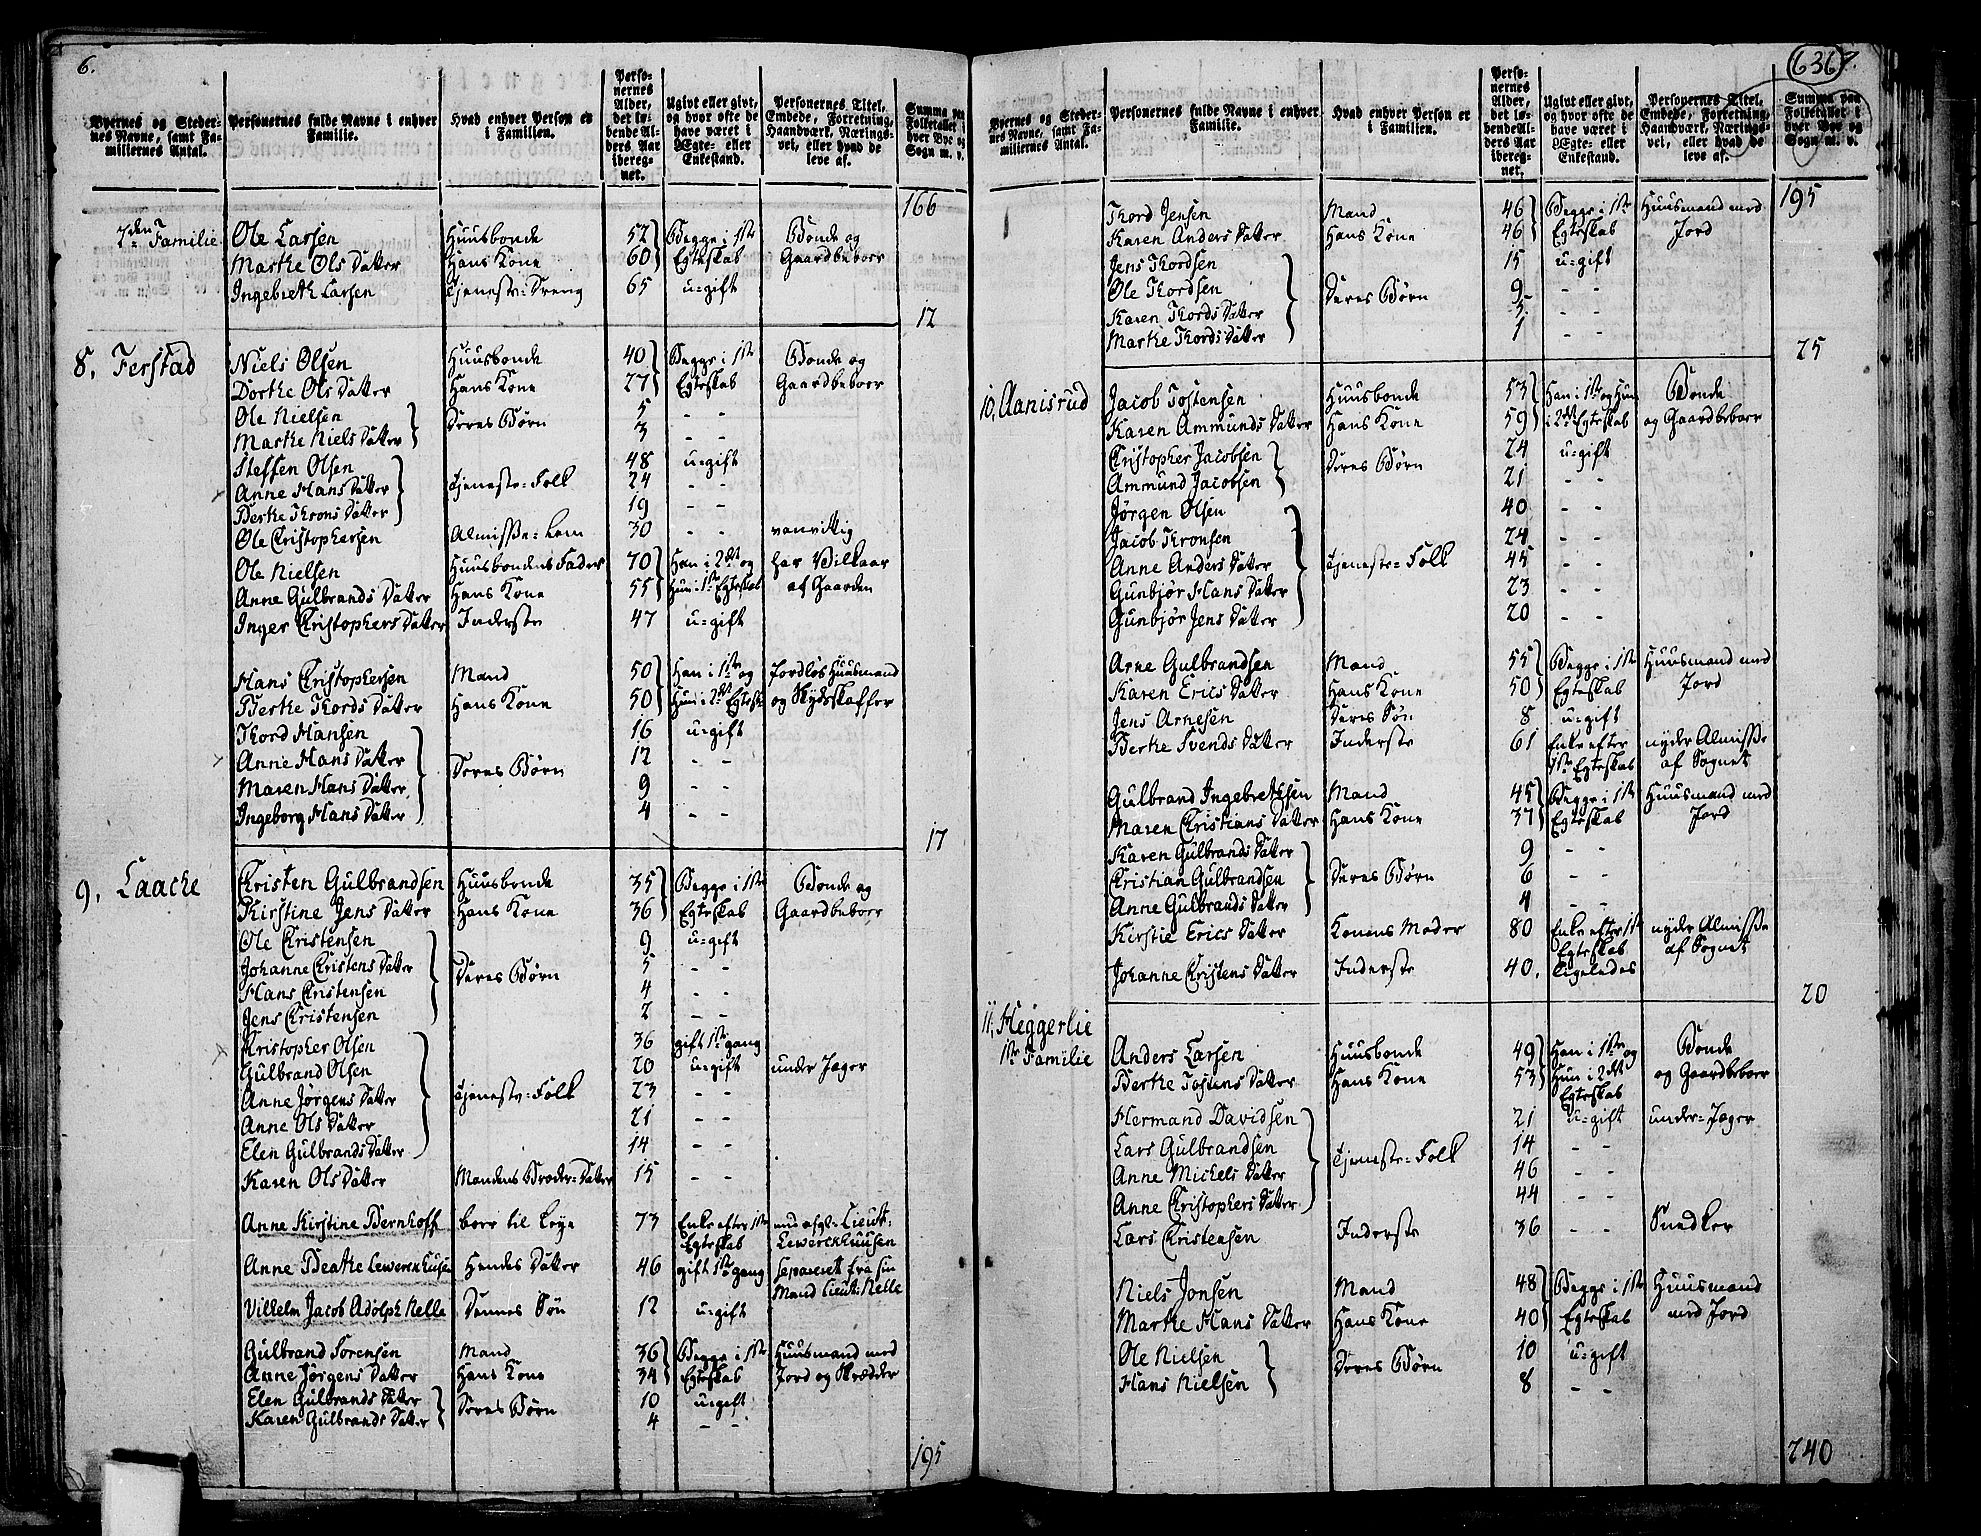 6.
Byernes og Steder-
nes Navne, samt Fa-
miliernes Antal.
Personernes fulde Navne i enhver
Familie.
Hvad enhver Person er
i Familien.
Perso-
nernes
Alder,
det lø-
bende Al-
ders Aar
ibereg-
net.
Ugivt eller givt,
og hvor ofte de
have været i
Ægte- eller
Enkestand.
Personernes Titel,
Embede, Forretning,
Haandværk, Nærings-
vei, eller hvad de
leve af.
Summa paa
Folketallet i
hver Bye og
Sogn m. v.
166
2den Familie Ole Larsen Huusbonde 52 Begge i 1ste Bonde og
Marthe Ols Datter Hans Kone 60 Egteskab Gaardbeboer
Ingebreth Larsen Tjeneste-Dreng 65 u-gift
12
8, Ferstad Niels Olsen Huusbonde 40 Begge i 1ste Bonde og
Dorthe Ols Datter Hans Kone 27 Egteskab Gaardbeboer
Ole Nielsen 5 - -
Deres Børn
Marthe Niels Datter 3 - -
Steffen Olsen 48 u-gift
Anne Hans Datter Tjeneste-Folk 24 - -
Berthe Throns Datter 19 - -
Ole Christophersen Almisse-Lem 30 - - vanvittig
Ole Nielsen Huusbondens Fader 70 Han i 2det og har Vilkaar
Anne Gulbrands Datter Hans Kone 55 Hun i 1ste Egteskab af Gaarden
Inger Christophers Datter Inderste 47 u-gift
Hans Christophersen Mand 50 Han i 1ste og Jordløs Huusmand
Berthe Thords Datter Hans Kone 50 Hun i 2det Egtesk. og Skydsskaffer
Thord Hansen 16 u-gift
Anne Hans Datter 12 - -
Deres Børn
Maren Hans Datter 9 - -
Ingeborg Hans Datter 4 - -
17
9, Laache Christen Gulbrandsen Huusbonde 35 Begge i 1ste Bonde og
Kirstine Jens Datter Hans Kone 36 Egteskab Gaardbeboer
Ole Christensen 9 u-gift
Johanne Christens Datter 5 - -
Deres Børn
Hans Christensen 4 - -
Jens Christensen 2 - -
Christopher Olsen 36 gift 1ste gang
Gulbrand Olsen 20 u-gift under Jæger
Anne Jørgens Datter Tjeneste-Folk 23 - -
Anne Ols Datter 21 - -
Elen Gulbrands Datter 14 - -
Karen Ols Datter Mandens Broder-Datter 15 - -
Anne Kirstine Bernhoff boer til Leye 73 Enke efter 1ste Lieut.
Egteskab Lewerckhuusen
Anne Beathe Lewerckhuusen Hendes Datter 46 gift 1ste gang separeret fra sin
Mand Lieut. Nelle
Vilhelm Jacob Adolph Nelle Dennes Søn 12 u-gift
Gulbrand Sørensen Mand 36 Begge i 1ste Huusmand med
Anne Jørgens Datter Hans Kone 34 Egteskab Jord og Skrædder
Elen Gulbrands Datter 10 u-gift
Deres Børn
Karen Gulbrands Datter 4 - -
195
636
7.
Byernes og Steder-
nes Navne, samt Fa-
miliernes Antal.
Personernes fulde Navne i enhver
Familie.
Hvad enhver Person er
i Familien.
Perso-
nernes
Alder,
det lø-
bende Al-
ders Aar
ibereg-
net.
Ugivt eller givt,
og hvor ofte de
have været i
Ægte- eller
Enkestand.
Personernes Titel,
Embede, Forretning,
Haandværk, Nærings-
vei, eller hvad de
leve af.
Summa paa
Folketallet i
hver Bye og
Sogn m. v.
195
Thord Jensen Mand 46 Begge i 1ste Huusmand med
Karen Anders Datter Hans Kone 46 Egteskab Jord
Jens Thordsen 15 u-gift
Ole Thordsen Deres Børn 9 - -
Karen Thords Datter 5 - -
Marthe Thords Datter 1 - -
25
10, Aanisrud Jacob Tostensen Huusbonde 53 Han i 1ste og Hun Bonde
Karen Ammunds Datter Hans Kone 59 i 2det Egteskab og Gaardbeboer
Christopher Jacobsen 24 u-gift
Deres Børn
Ammund Jacobsen 21 - -
Jørgen Olsen 40 - -
Jacob Thronsen 24 - -
Anne Anders Datter Tjeneste-Folk 45 - -
Gunbjør Hans Datter 23 - -
Gunbjør Jens Datter 20 - -
Arne Gulbrandsen Mand 55 Begge i 1ste Huusmand med
Karen Erics Datter Hans Kone 50 Egteskab Jord
Jens Arnesen Deres Søn 8 u-gift
Berthe Svends Datter Inderste 61 Enke efter nyder Almisse
1ste Egteskab af Sognet
Gulbrand Ingebrethsen Mand 45 Begge i 1ste Huusmand med
Maren Christians Datter Hans Kone 37 Egteskab Jord
Karen Gulbrands Datter 9 - -
Christian Gulbrandsen Deres Børn 6 - -
Anne Gulbrands Datter 4 - -
Kirstie Erics Datter Konens Moder 80 Enke efter 1ste nyder Almisse
Egteskab af Sognet
Johanne Christens Datter Inderste 40. ligeledes
20
11, Heggerlie
1ste Familie Anders Larsen Huusbonde 49 Han i 1ste og Bonde
Berthe Tostens Datter Hans Kone 53 Hun i 2det og Gaardbeboer
Egteskab
Hermand Davidsen 21 u-gift under-Jæger
Lars Gulbrandsen Tjeneste-Folk 14 - -
Anne Michels Datter 46
Anne Christophers Datter 44 - -
Lars Christensen Inderste 36 - - Snedker
Niels Jonsen Mand 48 Begge i 1ste Huusmand
Marthe Hans Datter Hans Kone 40 Egteskab med Jord
Ole Nielsen 10 u-gift
Deres Børn
Hans Nielsen 8 - -
240